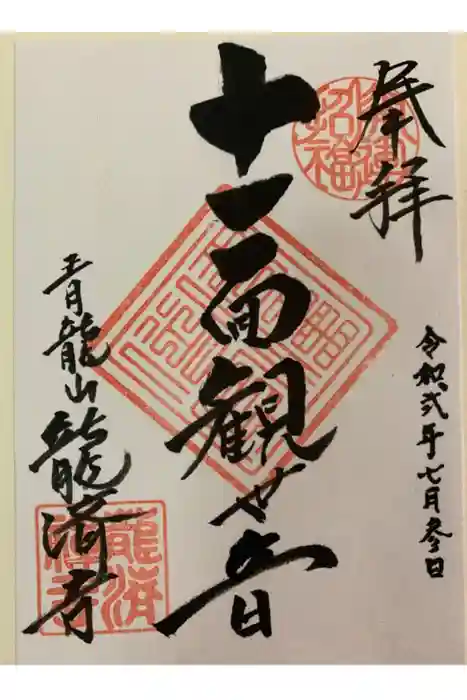 奉拝
令和弐年七月参日
十一面観世音
青龍山龍済寺
招福
龍済
禅寺